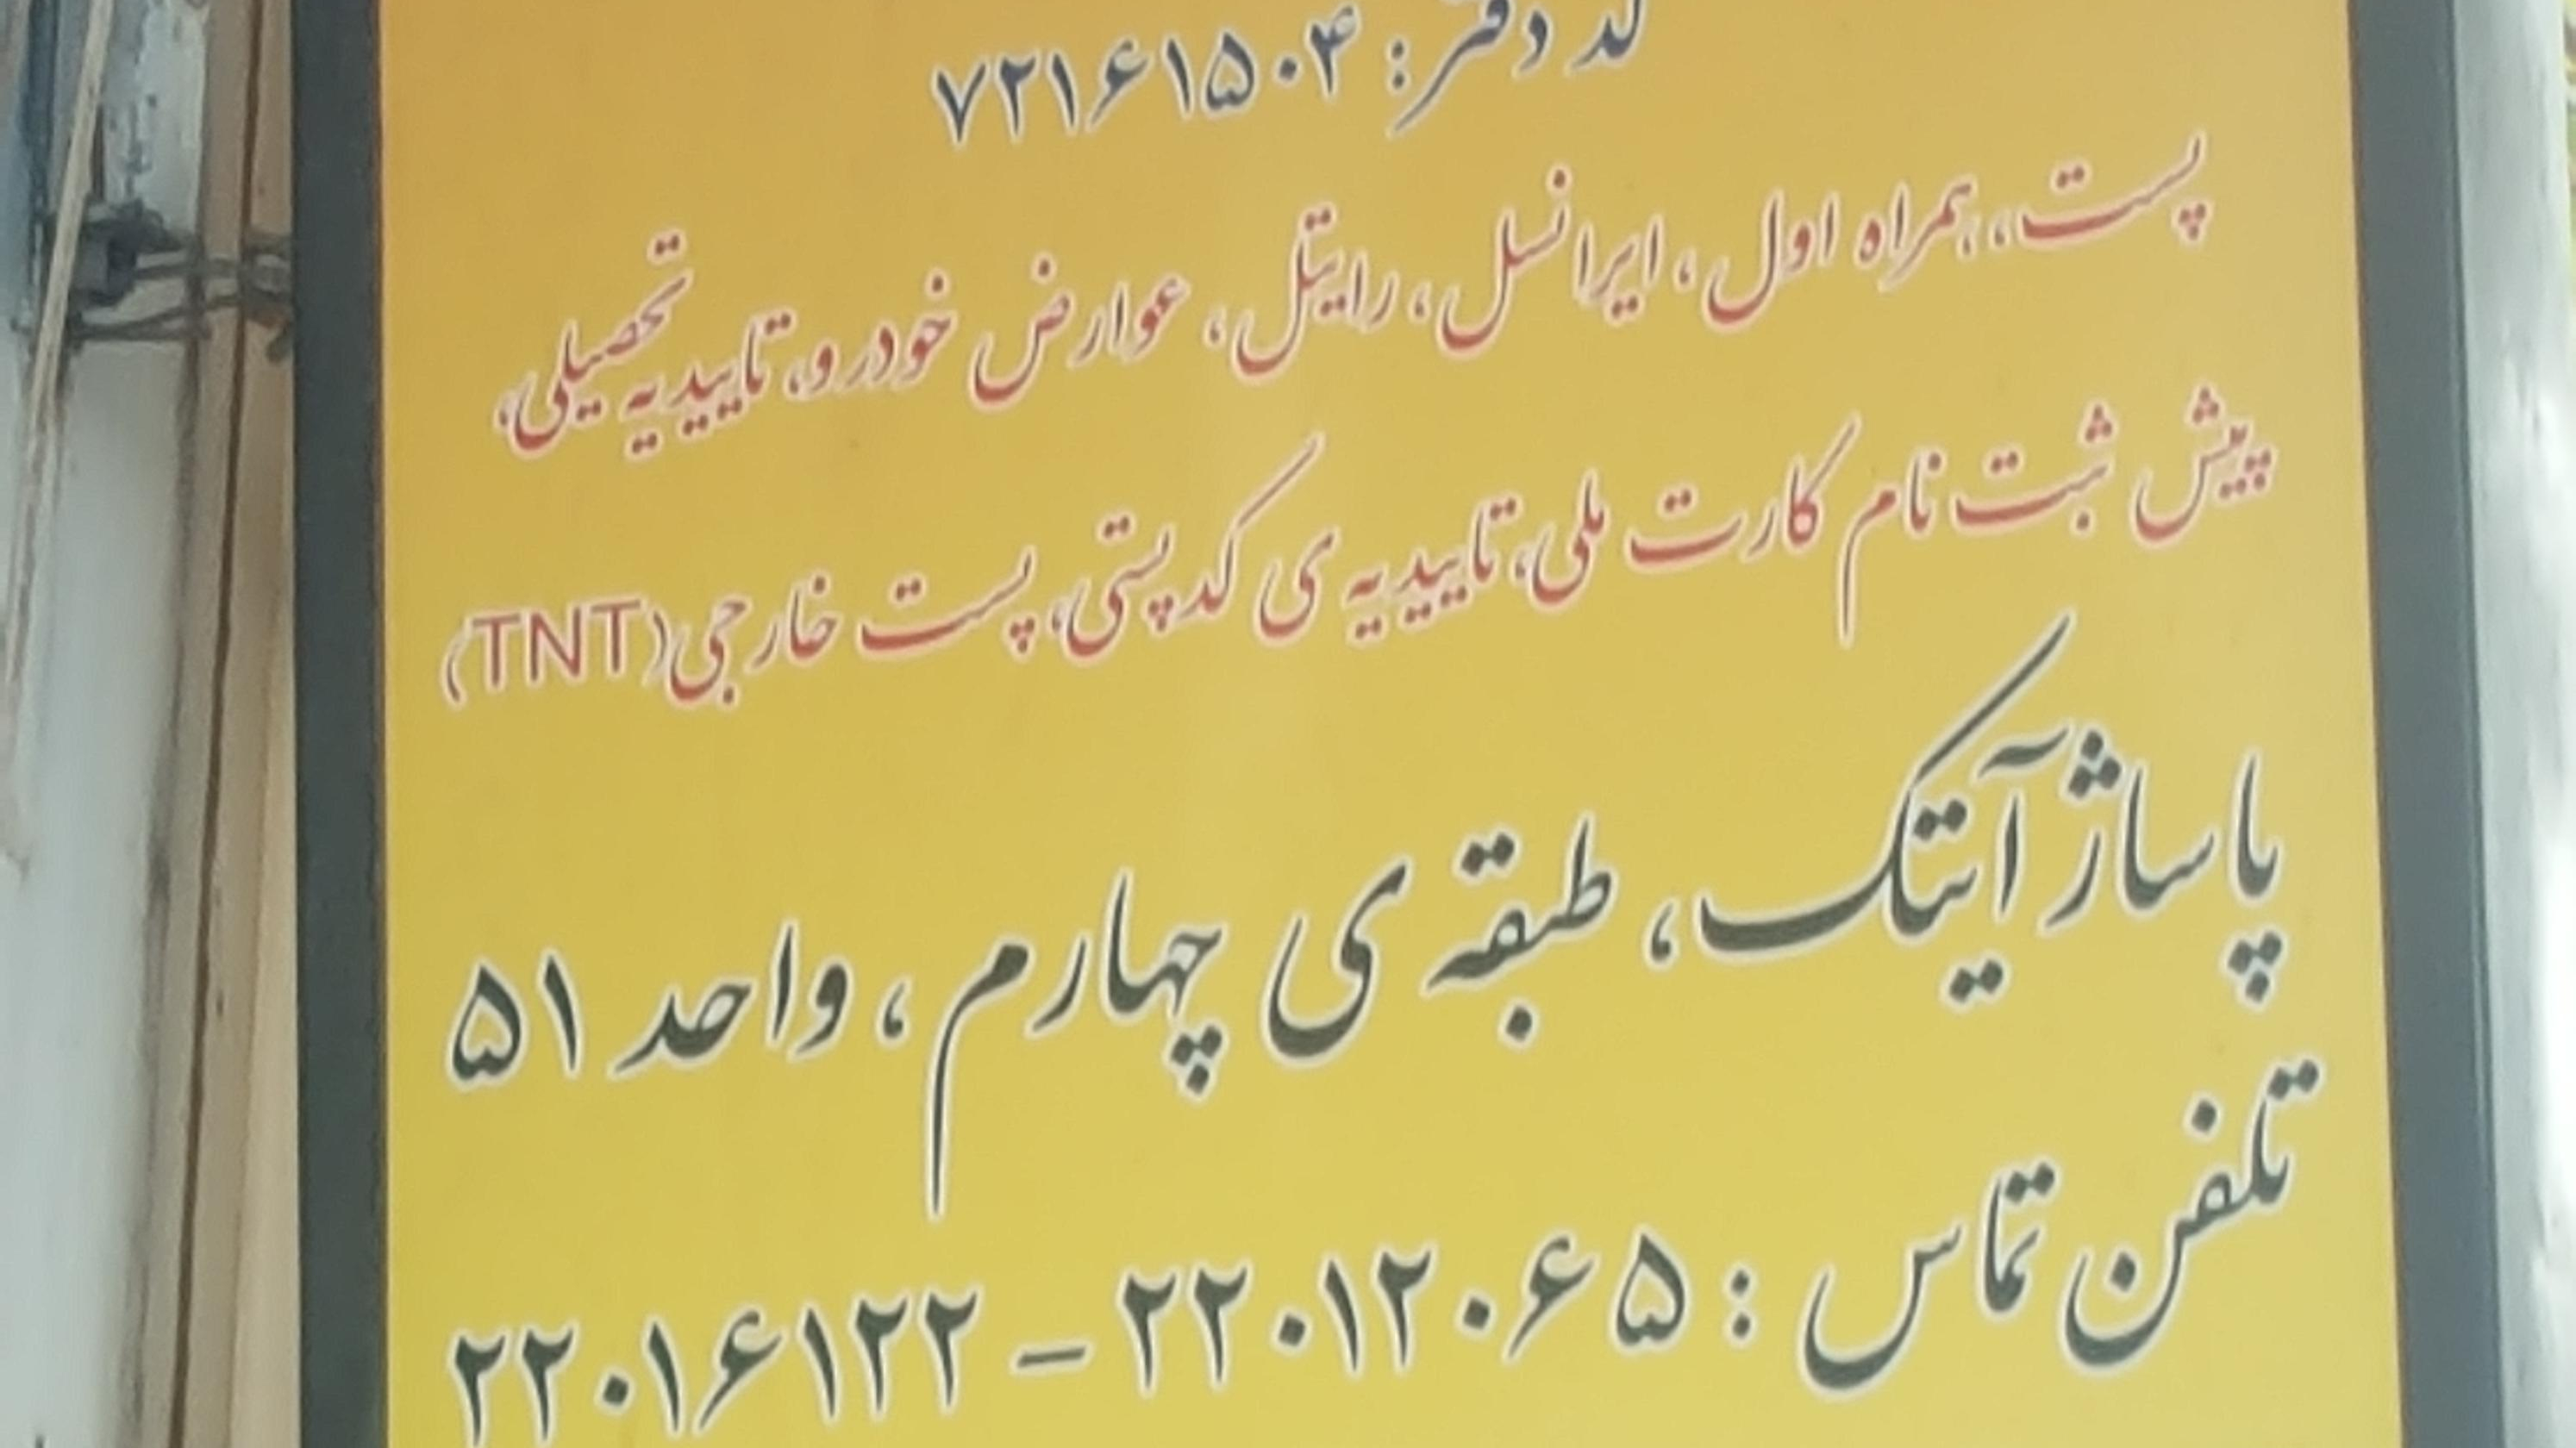 کد دفتر: ۷۲۱۶۱۵۰۴
پست، همراه اول، ایرانسل، رایتل، عوارض خودرو، تاییدیه تحصیلی،
پیش ثبت نام کارت ملی، تاییدیه ی کدپستی، پست خارجی (TNT)
پاساژ آیتک، طبقه ی چهارم، واحد ۵۱
تلفن تماس: ۲۲۰۱۲۰۶۵ – ۲۲۰۱۶۱۲۲